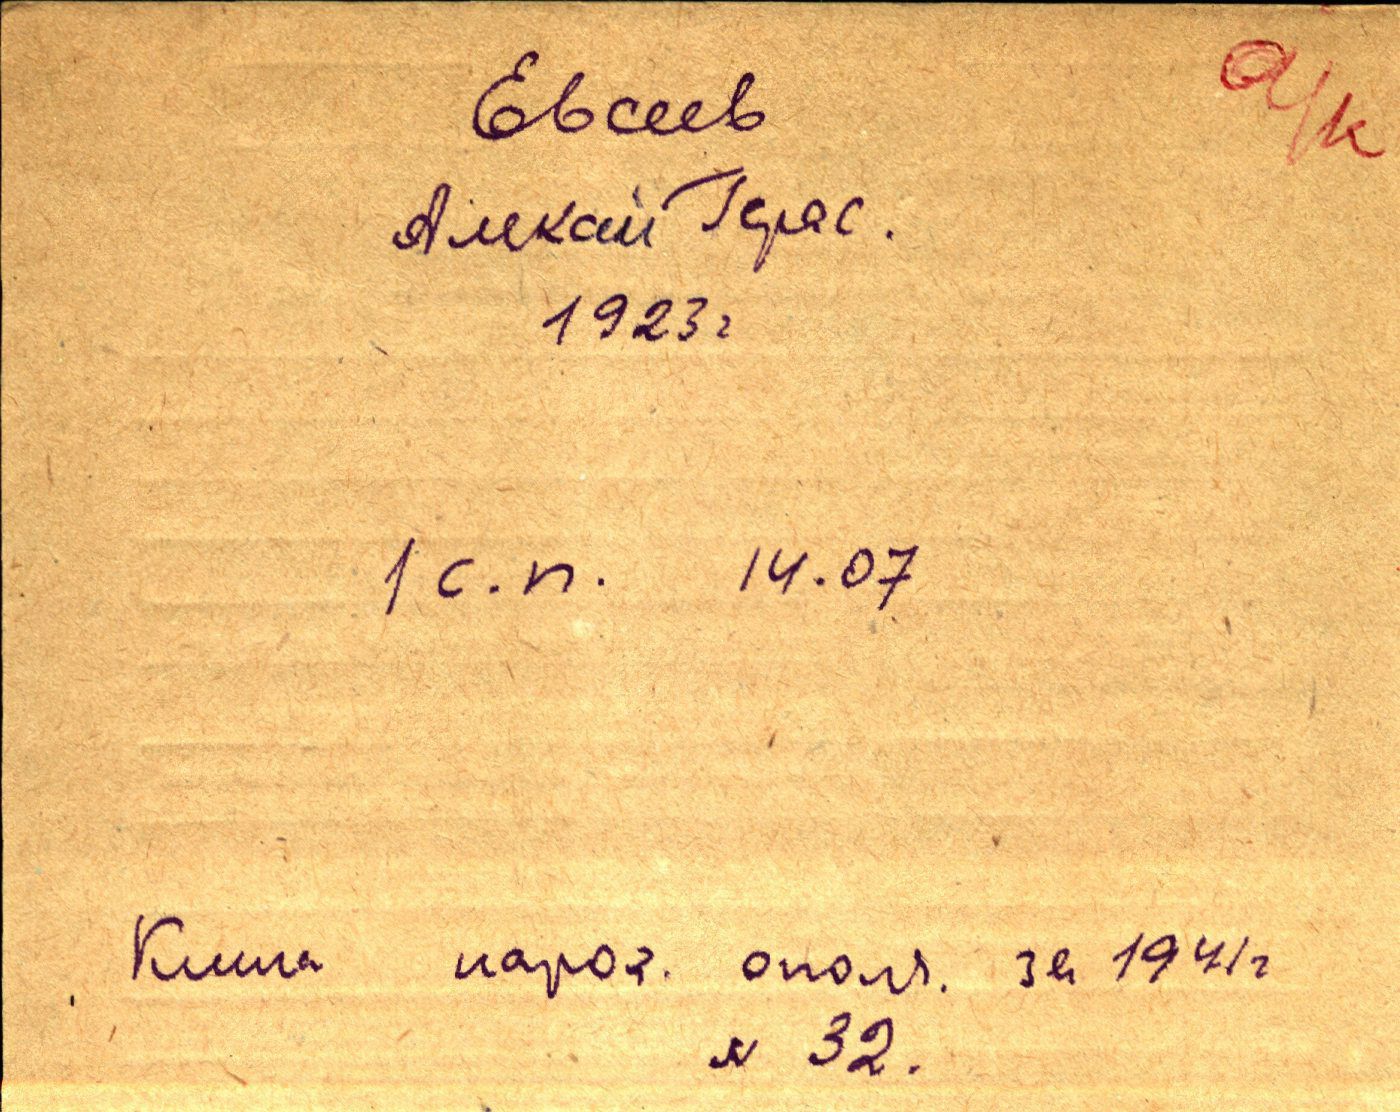 а/к
Евсеев
Алексей Герас.
1923г
1 с.п. 14.07
Книга народ. ополч. за 1941г
№ 32.